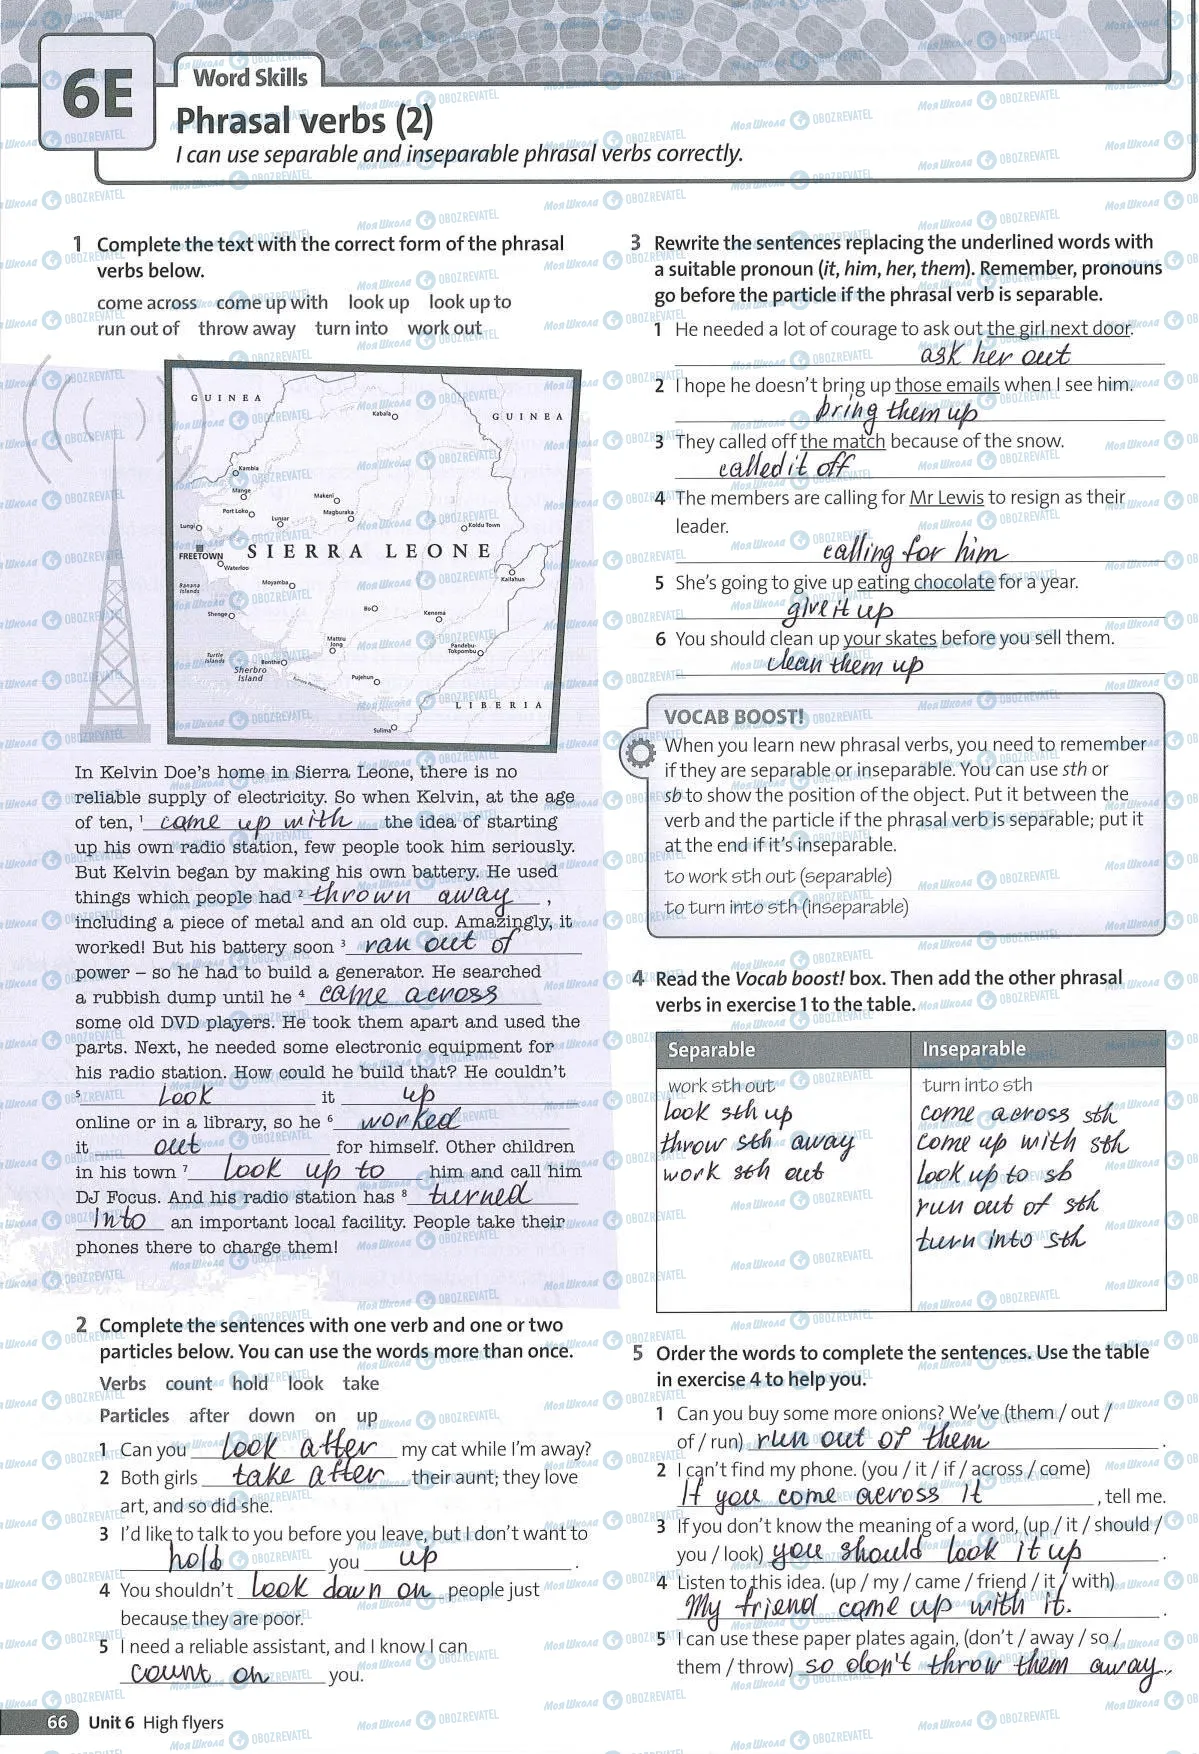 6E
Word Skills
Phrasal verbs (2)
I can use separable and inseparable phrasal verbs correctly.
1 Complete the text with the correct form of the phrasal
verbs below.
come across come up with look up look up to
run out of throw away turn into work out
GUINEA
GUINEA
Kabala
Kambia
Mange
Makeni
Port Loko
Lunsar
Magburaka
Lungi
Koidu Town
FREETOWN
SIERRA LEONE
Waterloo
Kailahun
Banana
Islands
Moyamba
Bo
Kenema
Shenge
Mattru
Jong
Pandebu-
Tokpombu
Turtle
Islands
Bonthe
Sherbro
Island
Pujehun
LIBERIA
Sulima
In Kelvin Doe's home in Sierra Leone, there is no
reliable supply of electricity. So when Kelvin, at the age
of ten, 1 came up with the idea of starting
up his own radio station, few people took him seriously.
But Kelvin began by making his own battery. He used
things which people had 2 thrown away ,
including a piece of metal and an old cup. Amazingly, it
worked! But his battery soon 3 ran out of
power – so he had to build a generator. He searched
a rubbish dump until he 4 came across
some old DVD players. He took them apart and used the
parts. Next, he needed some electronic equipment for
his radio station. How could he build that? He couldn't
5 Look it up
online or in a library, so he 6 worked
it out for himself. Other children
in his town 7 look up to him and call him
DJ Focus. And his radio station has 8 turned
into an important local facility. People take their
phones there to charge them!
2 Complete the sentences with one verb and one or two
particles below. You can use the words more than once.
Verbs count hold look take
Particles after down on up
1 Can you look after my cat while I'm away?
2 Both girls take after their aunt; they love
art, and so did she.
3 I'd like to talk to you before you leave, but I don't want to
hold you up .
4 You shouldn't look down on people just
because they are poor.
5 I need a reliable assistant, and I know I can
count on you.
3 Rewrite the sentences replacing the underlined words with
a suitable pronoun (it, him, her, them). Remember, pronouns
go before the particle if the phrasal verb is separable.
1 He needed a lot of courage to ask out the girl next door.
ask her out
2 I hope he doesn't bring up those emails when I see him.
bring them up
3 They called off the match because of the snow.
called it off
4 The members are calling for Mr Lewis to resign as their
leader.
calling for him
5 She's going to give up eating chocolate for a year.
give it up
6 You should clean up your skates before you sell them.
clean them up
VOCAB BOOST!
When you learn new phrasal verbs, you need to remember
if they are separable or inseparable. You can use sth or
sb to show the position of the object. Put it between the
verb and the particle if the phrasal verb is separable; put it
at the end if it's inseparable.
to work sth out (separable)
to turn into sth (inseparable)
4 Read the Vocab boost! box. Then add the other phrasal
verbs in exercise 1 to the table.
Separable Inseparable
work sth out turn into sth
look sth up come across sth
throw sth away come up with sth
work sth out look up to sb
run out of sth
turn into sth
5 Order the words to complete the sentences. Use the table
in exercise 4 to help you.
1 Can you buy some more onions? We've (them / out /
of / run) run out of them .
2 I can't find my phone. (you / it / if / across / come)
If you come across it , tell me.
3 If you don't know the meaning of a word, (up / it / should /
you / look) you should look it up .
4 Listen to this idea. (up / my / came / friend / it / with)
My friend came up with it. .
5 I can use these paper plates again, (don't / away / so /
them / throw) so don't throw them away .
66 Unit 6 High flyers
Моя Школа OBOZREVATEL